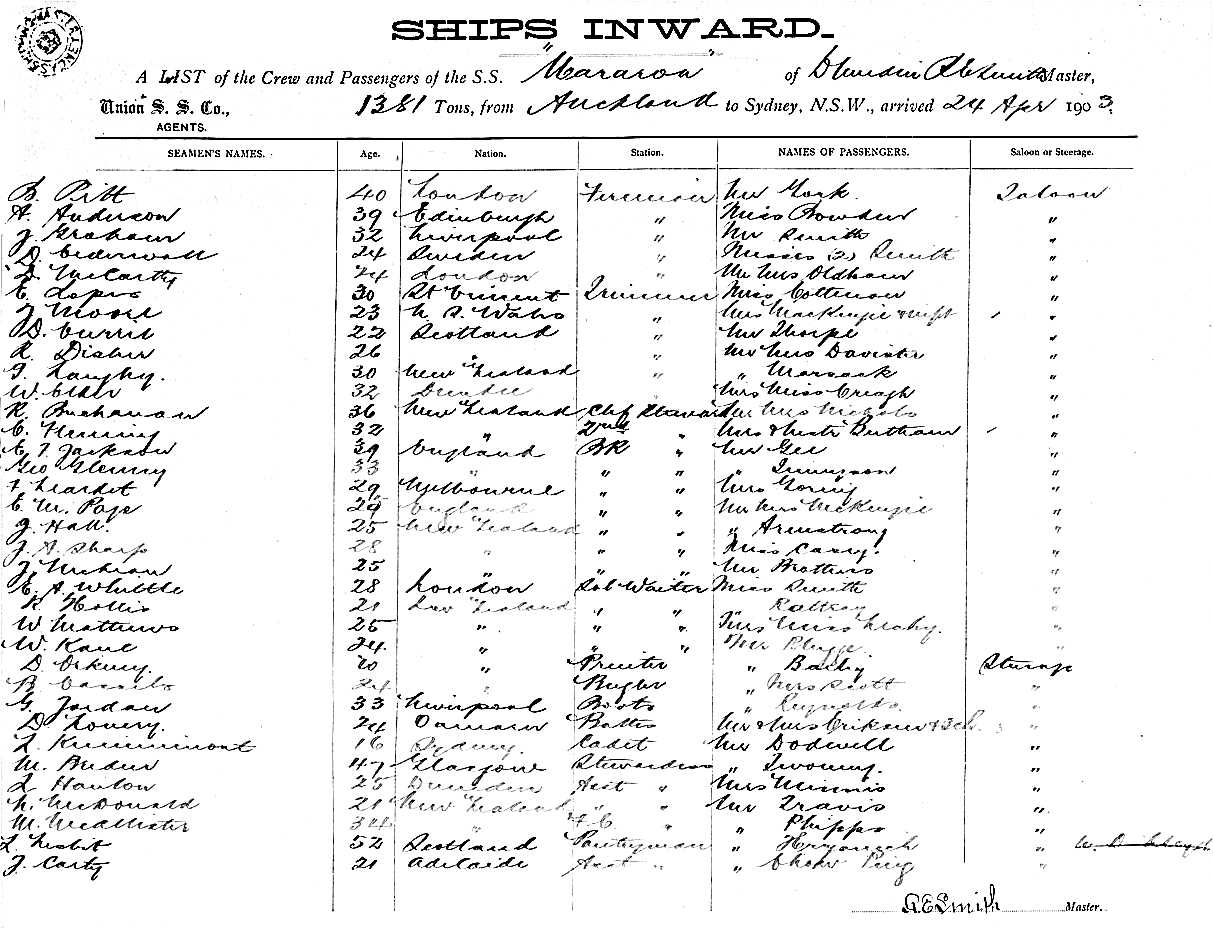 SHIPS INWARD.
A LIST of the Crew and Passengers of the S.S. "Mararoa" of Dunedin R E Smith Master,
Union S. S. Co., 1381 Tons, from Auckland to Sydney, N.S.W., arrived 24 Apr 1903.
AGENTS.
SEAMEN'S NAMES. Age. Nation. Station. NAMES OF PASSENGERS. Saloon or Steerage.
B. Pitt 40 London Fireman Mr York Saloon
A. Anderson 39 Edinburgh " Miss Bowden "
J. Graham 32 Liverpool " Mr Smith "
D. 24 Sweden " Misses (2) Smith "
D. McCarthy 24 London " Mr Mrs Oldham "
E. Lopes 30 St Vincent Trimmer Miss Cottman "
J Moore 23 N. S. Wales " Mrs MacKenzie & "
D. Currie 22 Scotland " Mr Thorpe "
R. Disher 26 " " Mr Mrs "
30 New Zealand " " "
W. 32 Dundee Mrs Miss Creagh "
R. Buchanan 36 New Zealand Chf Steward Mr Mrs Nichols "
C. Fleming 32 " 2nd " Mrs & "
E. T. Jackson 39 England BK " Mr Gee "
Geo 33 " " " " "
29 Melbourne " " Mrs "
E. M. Page 29 England " " Mr Mrs McKenzie "
J. Hall. 25 New Zealand " " " Armstrong "
J. A. Sharp 28 " " " Miss Casey. "
J. 25 " " " Mr Brothers "
E. A. Whittle 28 London Sal Waiter Miss Smith "
R Hollis 21 New Zealand " " " Rattray "
W Mathews 25 " " " Mrs Miss Leahy. "
W. Kane 24 " " " Mr "
D. Orkney. 20 " Printer " Steerage
B. 24 " Bugler " Mrs Scott "
G. Jordan 33 Liverpool Boots " Reynolds "
D. Lovery. 24 Oamaru Mr & Mrs Erikson & 3 ch. 3 "
L. 16 Sydney. Cadet Mr Dodwell "
M. 47 Glasgow Stewardess " Twomey. "
L Hanlon 25 Dunedin Asst " Mrs Minnis "
N. McDonald 21 New Zealand " " Mr Travis "
M. McAllister 34 " F C " " Phipps "
L. Nesbit 52 Scotland Pantryman " "
J. Carty 21 Adelaide Asst " " "
R.E Smith Master.